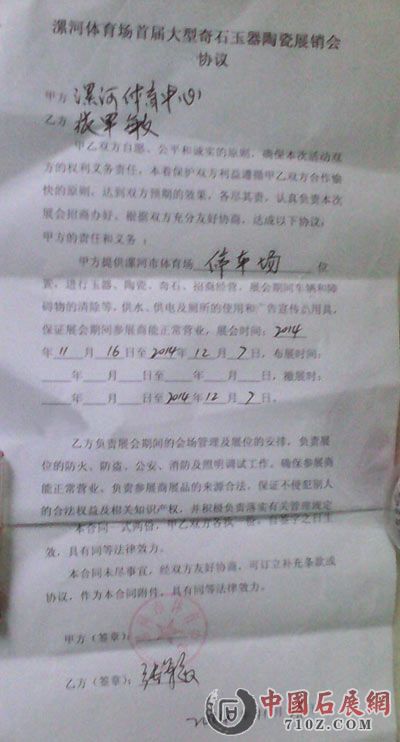 漯河体育场首届大型奇石玉器陶瓷展销会
协议
甲方 漯河体育中心
乙方 张军敏
甲乙双方自愿、公平和诚实的原则，确保本次活动双
方的权利义务责任，本着保护双方利益遵循甲乙双方合作愉
快的原则，达到双方预期的效果，各尽其责，认真负责本次
展会招商办好。根据双方充分友好协商，达成以下协议：
甲方的责任和义务：
甲方提供漯河市体育场 停车场 位
置，进行玉器、陶瓷、奇石、招商经营，展会期间车辆和障
碍物的清除等，供水、供电及厕所的使用和广告宣传用具，
保证展会期间参展商能正常营业，展会时间：2014
年 11 月 16 日至 2014 年 12 月 7 日，布展时间：
年 月 日至 年 月 日，撤展时：
年 月 日至 2014 年 12 月 7 日。
乙方负责展会期间的会场管理及展位的安排，负责展
位的防火、防盗、公安、消防及照明调试工作。确保参展商
能正常营业。负责参展商展品的来源合法，保证不侵犯别人
的合法权益及相关知识产权，并积极负责落实有关管理规定
本合同一式两份，甲乙双方各执一份，自签字之日生
效，具有同等法律效力。
本合同未尽事宜，经双方友好协商，可订立补充条款或
协议，作为本合同附件，具有同等法律效力。
甲方（签章）：
乙方（签章）：张军敏
中國石展網
710Z.COM